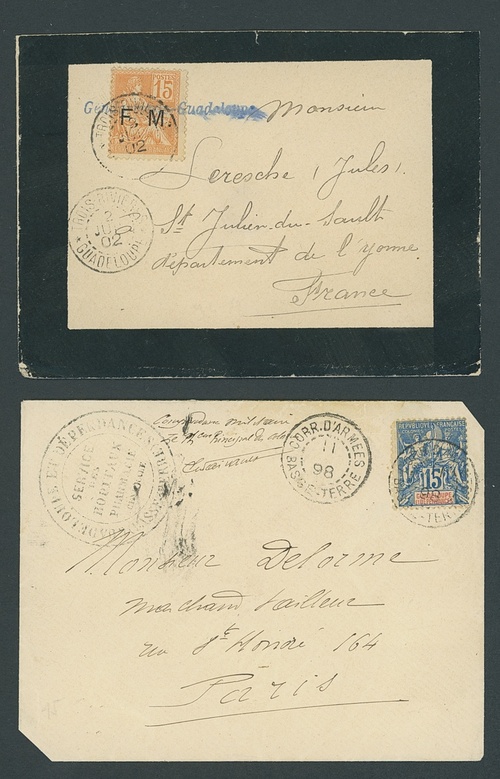 POSTES
15
F. M.
TROIS-RIVIÈRES
02
Guadeloupe
Monsieur
Seresche (Jules)
TROIS-RIVIÈRES
2
02
GUADELOUPE
St Julien-du-Sault
Département de l'Yonne
France
GUADELOUPE ET DÉPENDANCES
SERVICE
DES
HOPITAUX
PHARMACIE
Correspondance militaire
Principal
CORR. D'ARMÉES
11
98
BASSE-TERRE
RÉPUBLIQUE FRANÇAISE
COLONIES POSTES
15
Monsieur Delorme
marchand tailleur
rue St Honoré 164
Paris